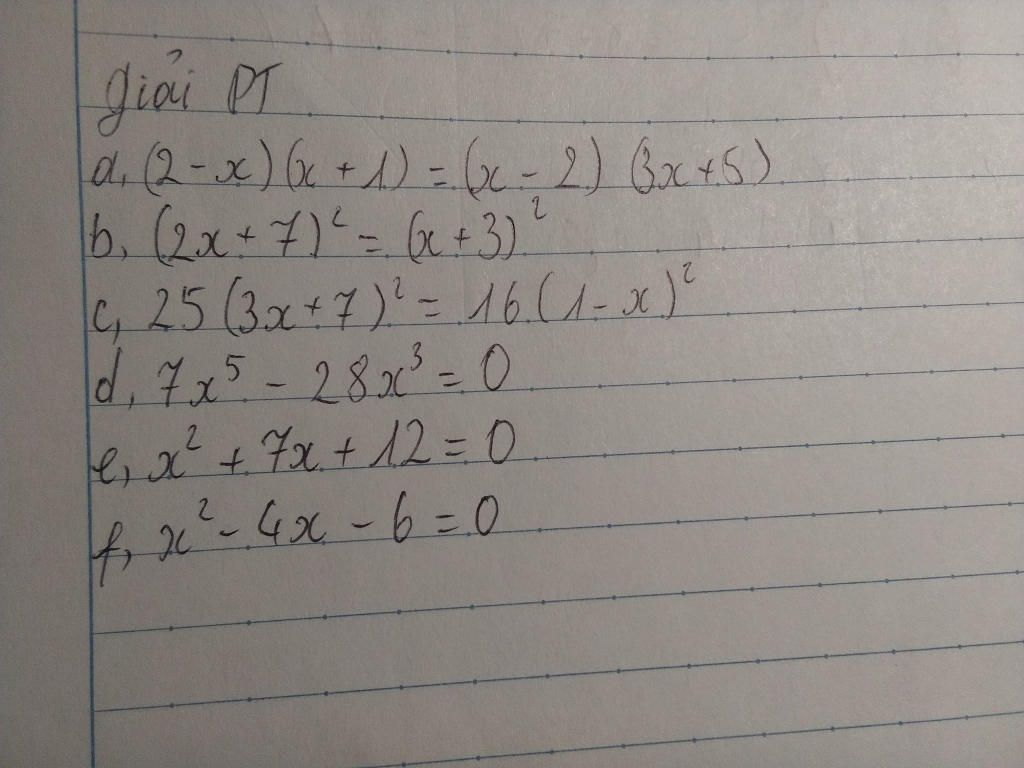 Giải PT
a, (2 - x)(x + 1) = (x - 2) (3x + 5)
b, (2x + 7)² = (x + 3)²
c, 25 (3x + 7)² = 16 (1 - x)²
d, 7x⁵ - 28x³ = 0
e, x² + 7x + 12 = 0
f, x² - 4x - 6 = 0